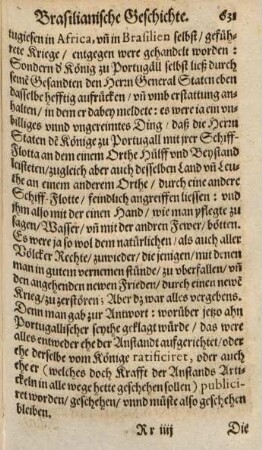 Brasilianische Geschichte. 631
tugiesen in Africa, vñ in Brasilien selbst/ gefüh-
rete Kriege/ entgegen were gehandelt worden:
Sondern d König zu Portugall selbst ließ durch
seine Gesandten den Herrn General Staten eben
dasselbe hefftig auffrücken/ vñ vmb erstattung an-
halten/ in dem er dabey meldete: es were ja ein vn-
billiges vnnd vngereimtes Ding/ daß die Herrn
Staten dẽ Könige zu Portugall mit jrer Schiff-
Flotta an dem einem Orthe Hülff vnd Beystand
leisteten/ zugleich aber auch desselben Land vñ Leu-
the an einem anderem Orthe/ durch eine andere
Schiff-Flotte/ feindlich angreiffen liessen: vnd
jhm also mit der einen Hand/ wie man pflegte zu
sagen/ Wasser/ vñ mit der andren Fewer/ bötten.
Es were ja so wol dem natürlichen/ als auch aller
Völcker Rechte/ zuwieder/ die jenigen/ mit denen
man in gutem vernemen stünde/ zu vberfallen/ vñ
den angehenden newen Frieden/ durch einen newẽ
Krieg/ zu zerstören; Aber dz war alles vergebens.
Denn man gab zur Antwort: worüber jetzo ahn
Portugallischer seythe geklagt würde/ das were
alles entweder ehe der Anstandt auffgerichtet/ oder
ehe derselbe vom Könige ratificiret, oder auch
ehe er (welches doch Krafft der Anstands Arti-
ckeln in alle wege hette geschehen sollen) publici-
ret worden/ geschehen/ vnnd müste also geschehen
bleiben.
Rr iiij Die